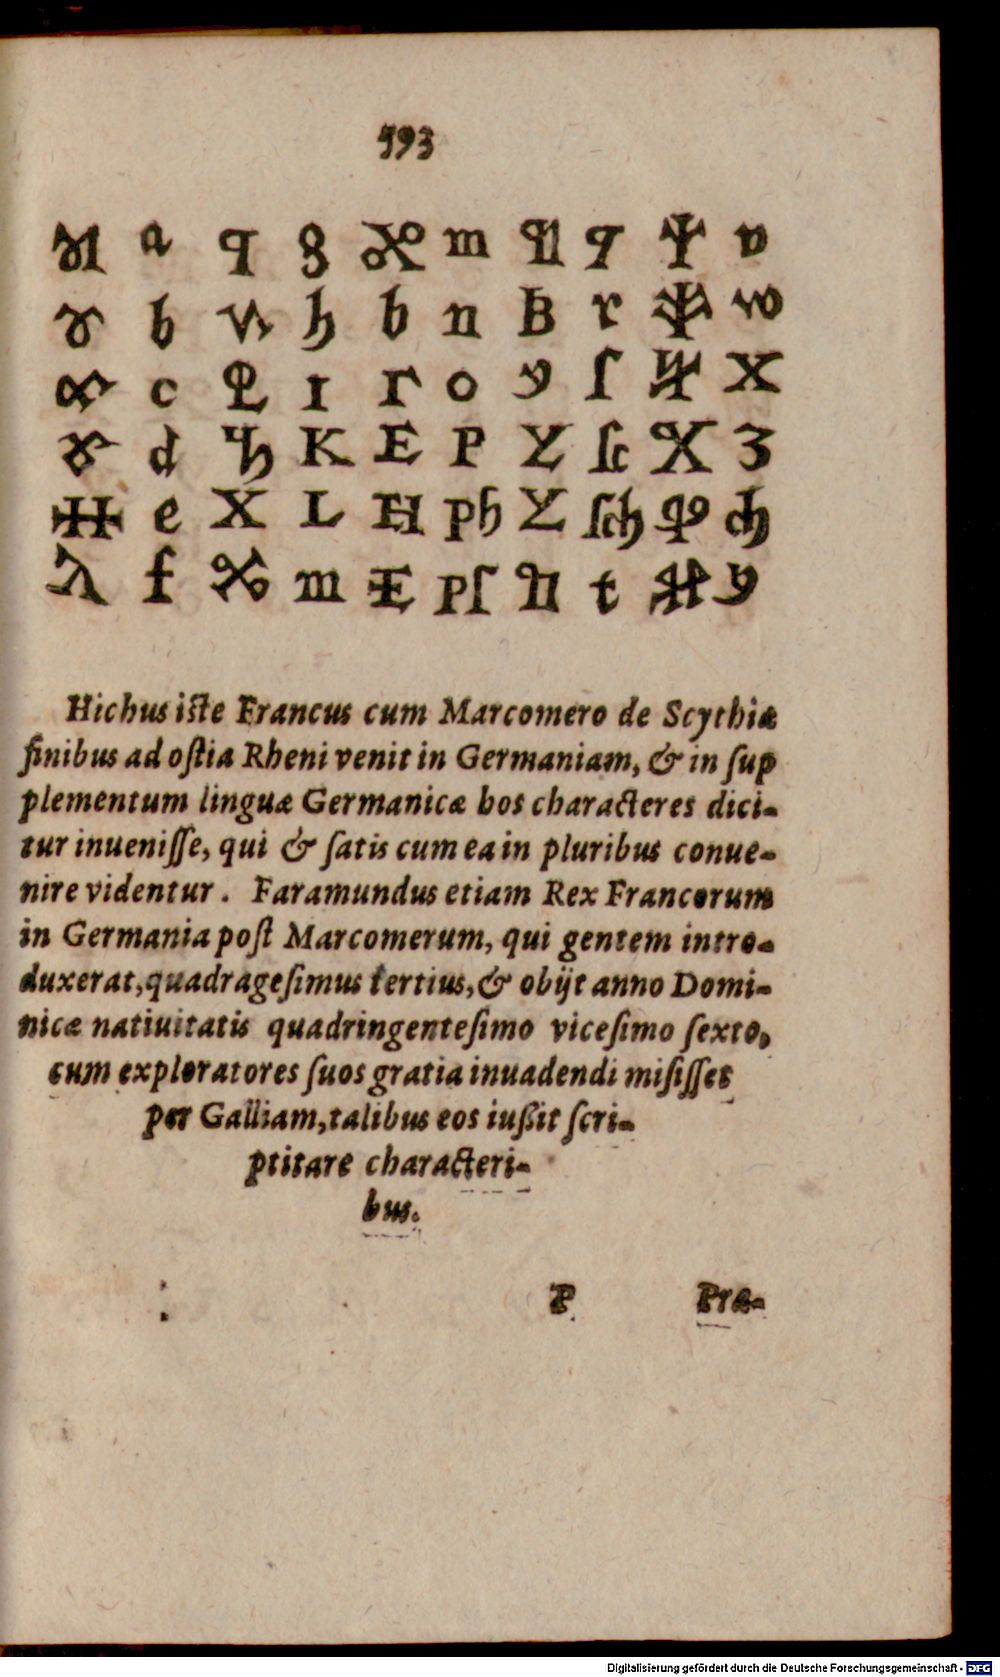 593
a g m q v
b h b n B r w
c I Γ o y ſ X
d K E P Σ ſc X 3
e X L H ph Σ ſch ch
λ f m E pſ t y
Hichus iſte Francus cum Marcomero de Scythiæ
finibus ad oſtia Rheni venit in Germaniam, & in ſup
plementum linguæ Germanicæ hos characteres dici-
tur inueniſſe, qui & ſatis cum ea in pluribus conue-
nire videntur. Faramundus etiam Rex Francorum
in Germania poſt Marcomerum, qui gentem intro-
duxerat, quadrageſimus tertius, & obijt anno Domi-
nicæ natiuitatis quadringenteſimo viceſimo ſexto,
cum exploratores ſuos gratia inuadendi miſiſſet
per Galliam, talibus eos iußit ſcri-
ptitare characteri-
bus.
P Præ-
Digitalisierung gefördert durch die Deutsche Forschungsgemeinschaft - DFG